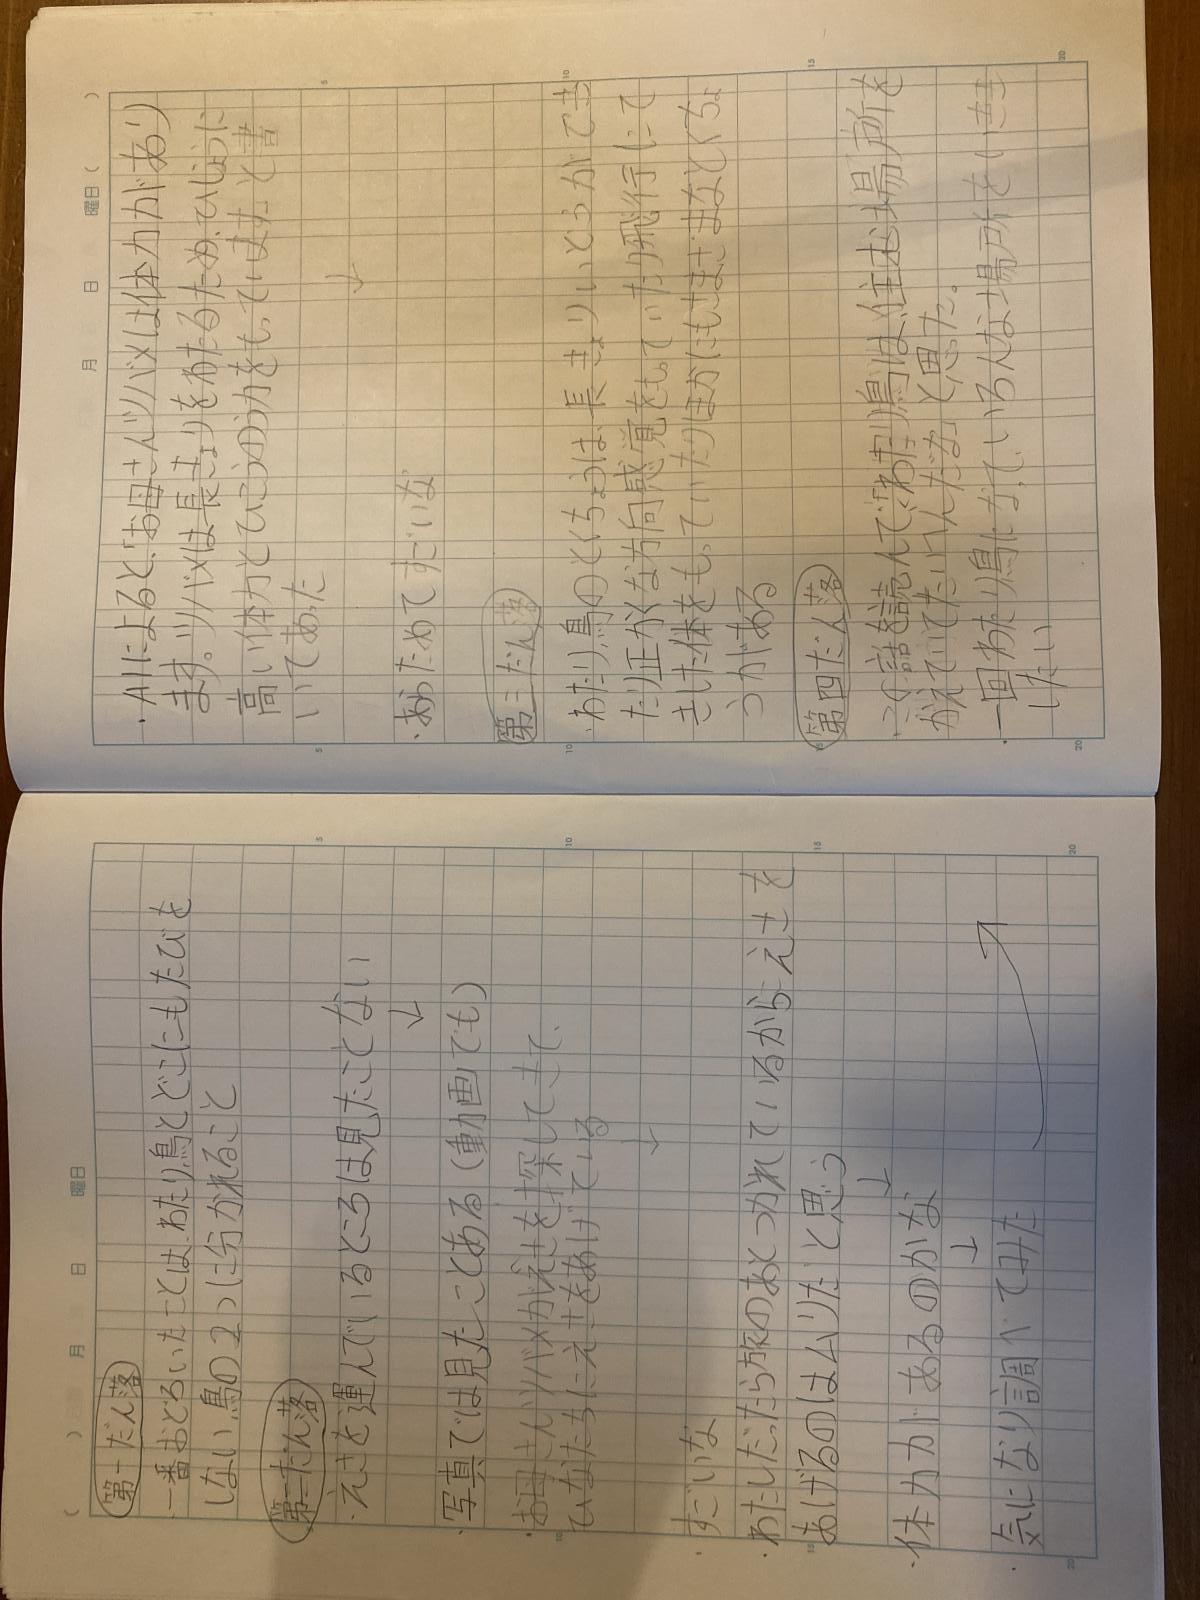 月 日 曜日( )
第一だん落
・一番おどろいたことは、わたり鳥とどこにもたびを
しない鳥の2つに分かれること
第二だん落
・えさを運んでいるところは見たことない
↓
・写真では見たことある(動画でも)
・お母さんツバメがえさを探してきて、
ひなたちにえさをあげている
↓
・すごいな
・わたしだったら旅のあとつかれているからえさを
あげるのはムリだと思う
↓
・体力があるのかな
↓
・気になり調べてみた
5
10
15
20
月 日 曜日( )
・AIによると、「お母さんツバメは体力があり
ます。ツバメは長きょりをわたるため、ひじょうに
高い体力とひこうの力をもっています」と書
いてあった
↓
・あらためてすごいな
第三だん落
・わたり鳥のとくちょうは、長きょりいどうができ
たり正かくな方向感覚をもっていたり飛行にて
きした体をもっていたりほかにもさまざまなとくちょ
うがある
第四だん落
・この話を読んで「わたり鳥は、住む場所を
かえていてたいへんだな」と思った。
・一回わたり鳥になって、いろんな場所をいき
いたい
5
10
15
20